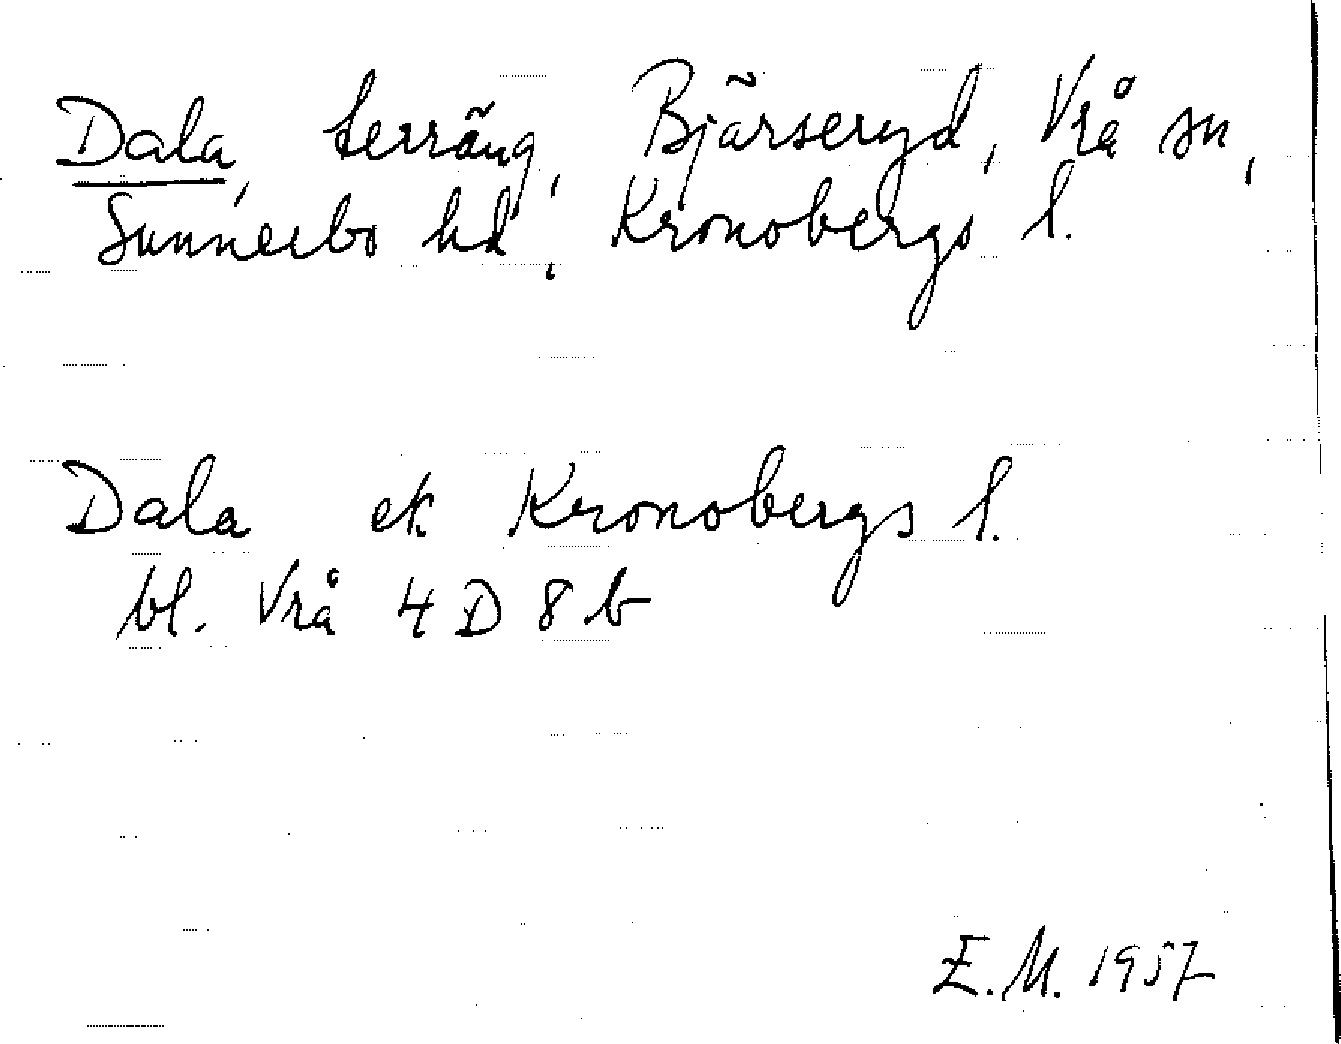 Dala, terräng, Bjärseryd, Vrå sn,
Sunnerbo hd, Kronobergs l.
Dala ek Kronobergs l.
bl. Vrå 4 D 8 b
E.M. 1957